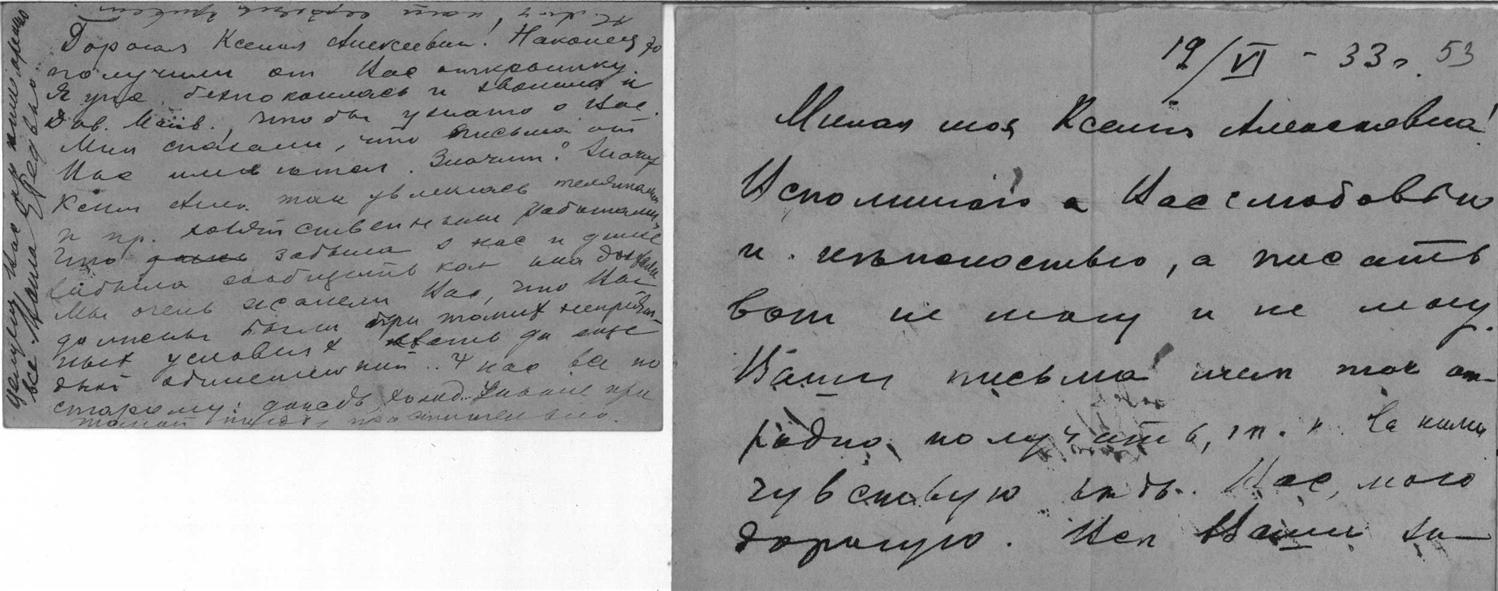 Дорогая Ксения Алексеевна! Наконец-то
получили от Вас открытку.
Я уже безпокоилась и звонила к
Дав. Матв., чтобы узнать о Вас.
Мне сказали, что письма от
Вас имеются. Значит? Значит
Ксения Алек. так увлеклась
и пр. хозяйственными работами,
что забыла о нас и даже
забыла сообщить как она доехала
Мы очень жалели Вас, что Вы
должны были при таких неприят
ных условиях ехать да еще
У нас все по
старому: дождь, холод.
целуем Вас
все Ваша
19/VI - 33 г. 53
Милая моя Ксения Алексеевна!
Вспоминаю о Вас с любовью
и нежностью, а писать
вот не могу и не могу.
Ваши письма мне так от-
радно получать, т. к. за ними
чувствую Вас, мою
дорогую. Все Ваши за-